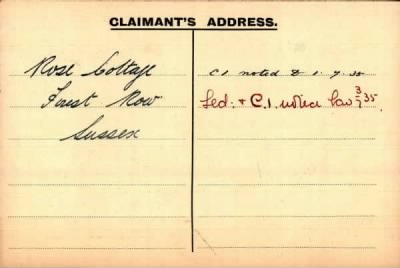 CLAIMANT'S ADDRESS.
Rose Cottage
Forest Row
Sussex
C.I. noted & 1. 7. 35
Led: & C.I. notice 3/7 35